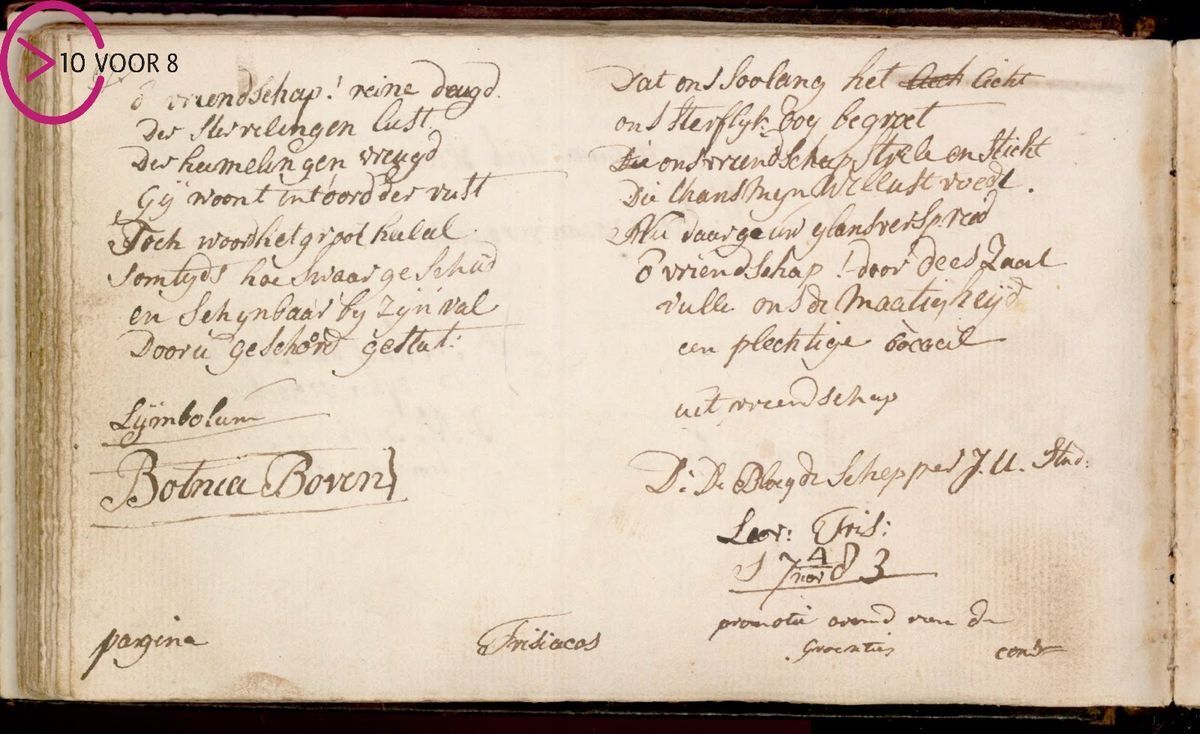 10 VOOR 8
ô vriendschap! reine deugd
Der stervelingen lust
Der hemelingen vreugd
Gij woont in t oord der rust
Toch word het groot halal
Somtyds hoe swaar geschud
en Schynbaar by zijn val
Door u geschord gestut:
Symbolum
Botnia Boven
pagina
Frisiacos
Dat ons soo lang het licht
ons sterflyk oog begroet
Die ons vriendschap strele en sticht
Die thans myn wellust voedt.
Nu daar ge uw glans verspreid
ô vriendschap! door dees Zaal
vulle ons de Maatigheijd
een plechtige bocaal
uit vriendschap
D: De Bloeq de Schepper J. U. Stud:
Leov: Fris:
17 4/nov 83
promotie avond van de
Groenties